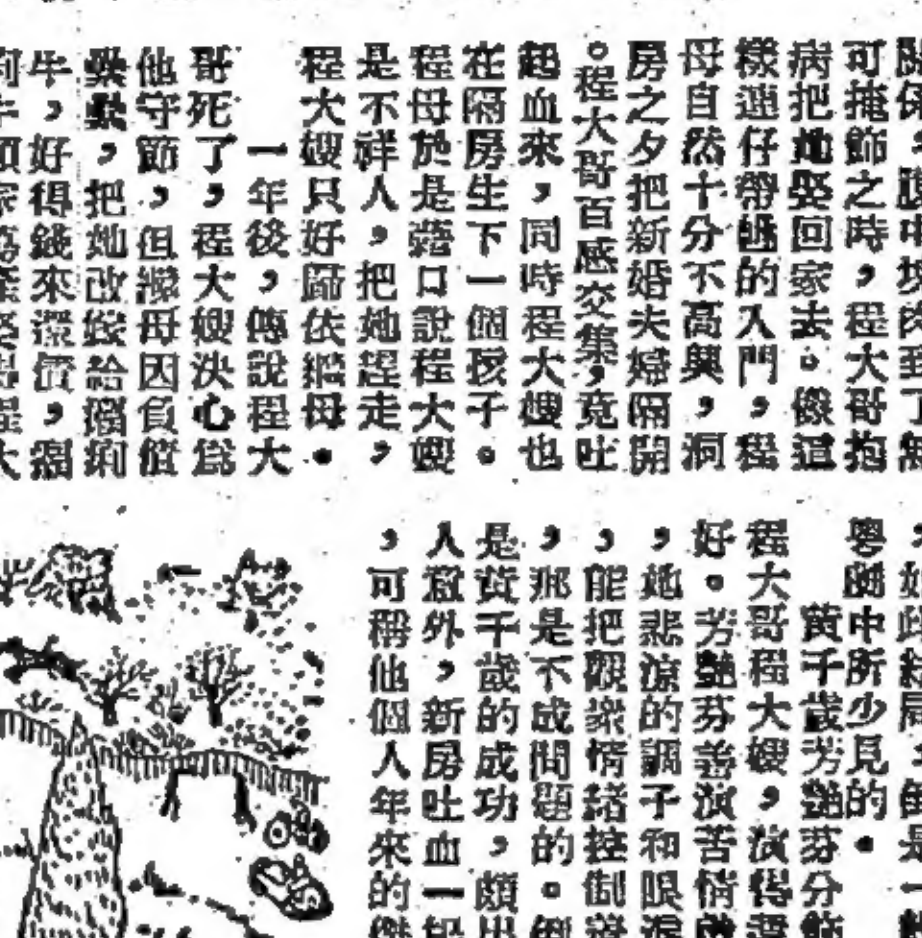 可掩飾之時,程大哥抱
病把她娶回家去。像這
樣連仔帶的入門,程
母自然十分不高興,洞
房之夕把新婚夫婦隔開
。程大哥百感交集,竟吐
起血來,同時程大嫂也
在隔房生下一個孩子。
程母於是藉口說程大嫂
是不祥人,把她趕走,
程大嫂只好歸依繼母。
一年後,傳說程大
哥死了,程大嫂決心為
他守節,但繼母因負債
纍纍,把她改嫁給癩痢
牛,好得錢來還債,癩
粵劇中所少見的。
黃千歲芳艷芬分飾
程大哥程大嫂,演得還
好。芳艷芬善演苦情戲
,她悲涼的調子和眼淚
,能把觀衆情緒控制
,那是不成問題的。倒
是黃千歲的成功,頗出
人意外,新房吐血一
,可稱他個人年來的傑